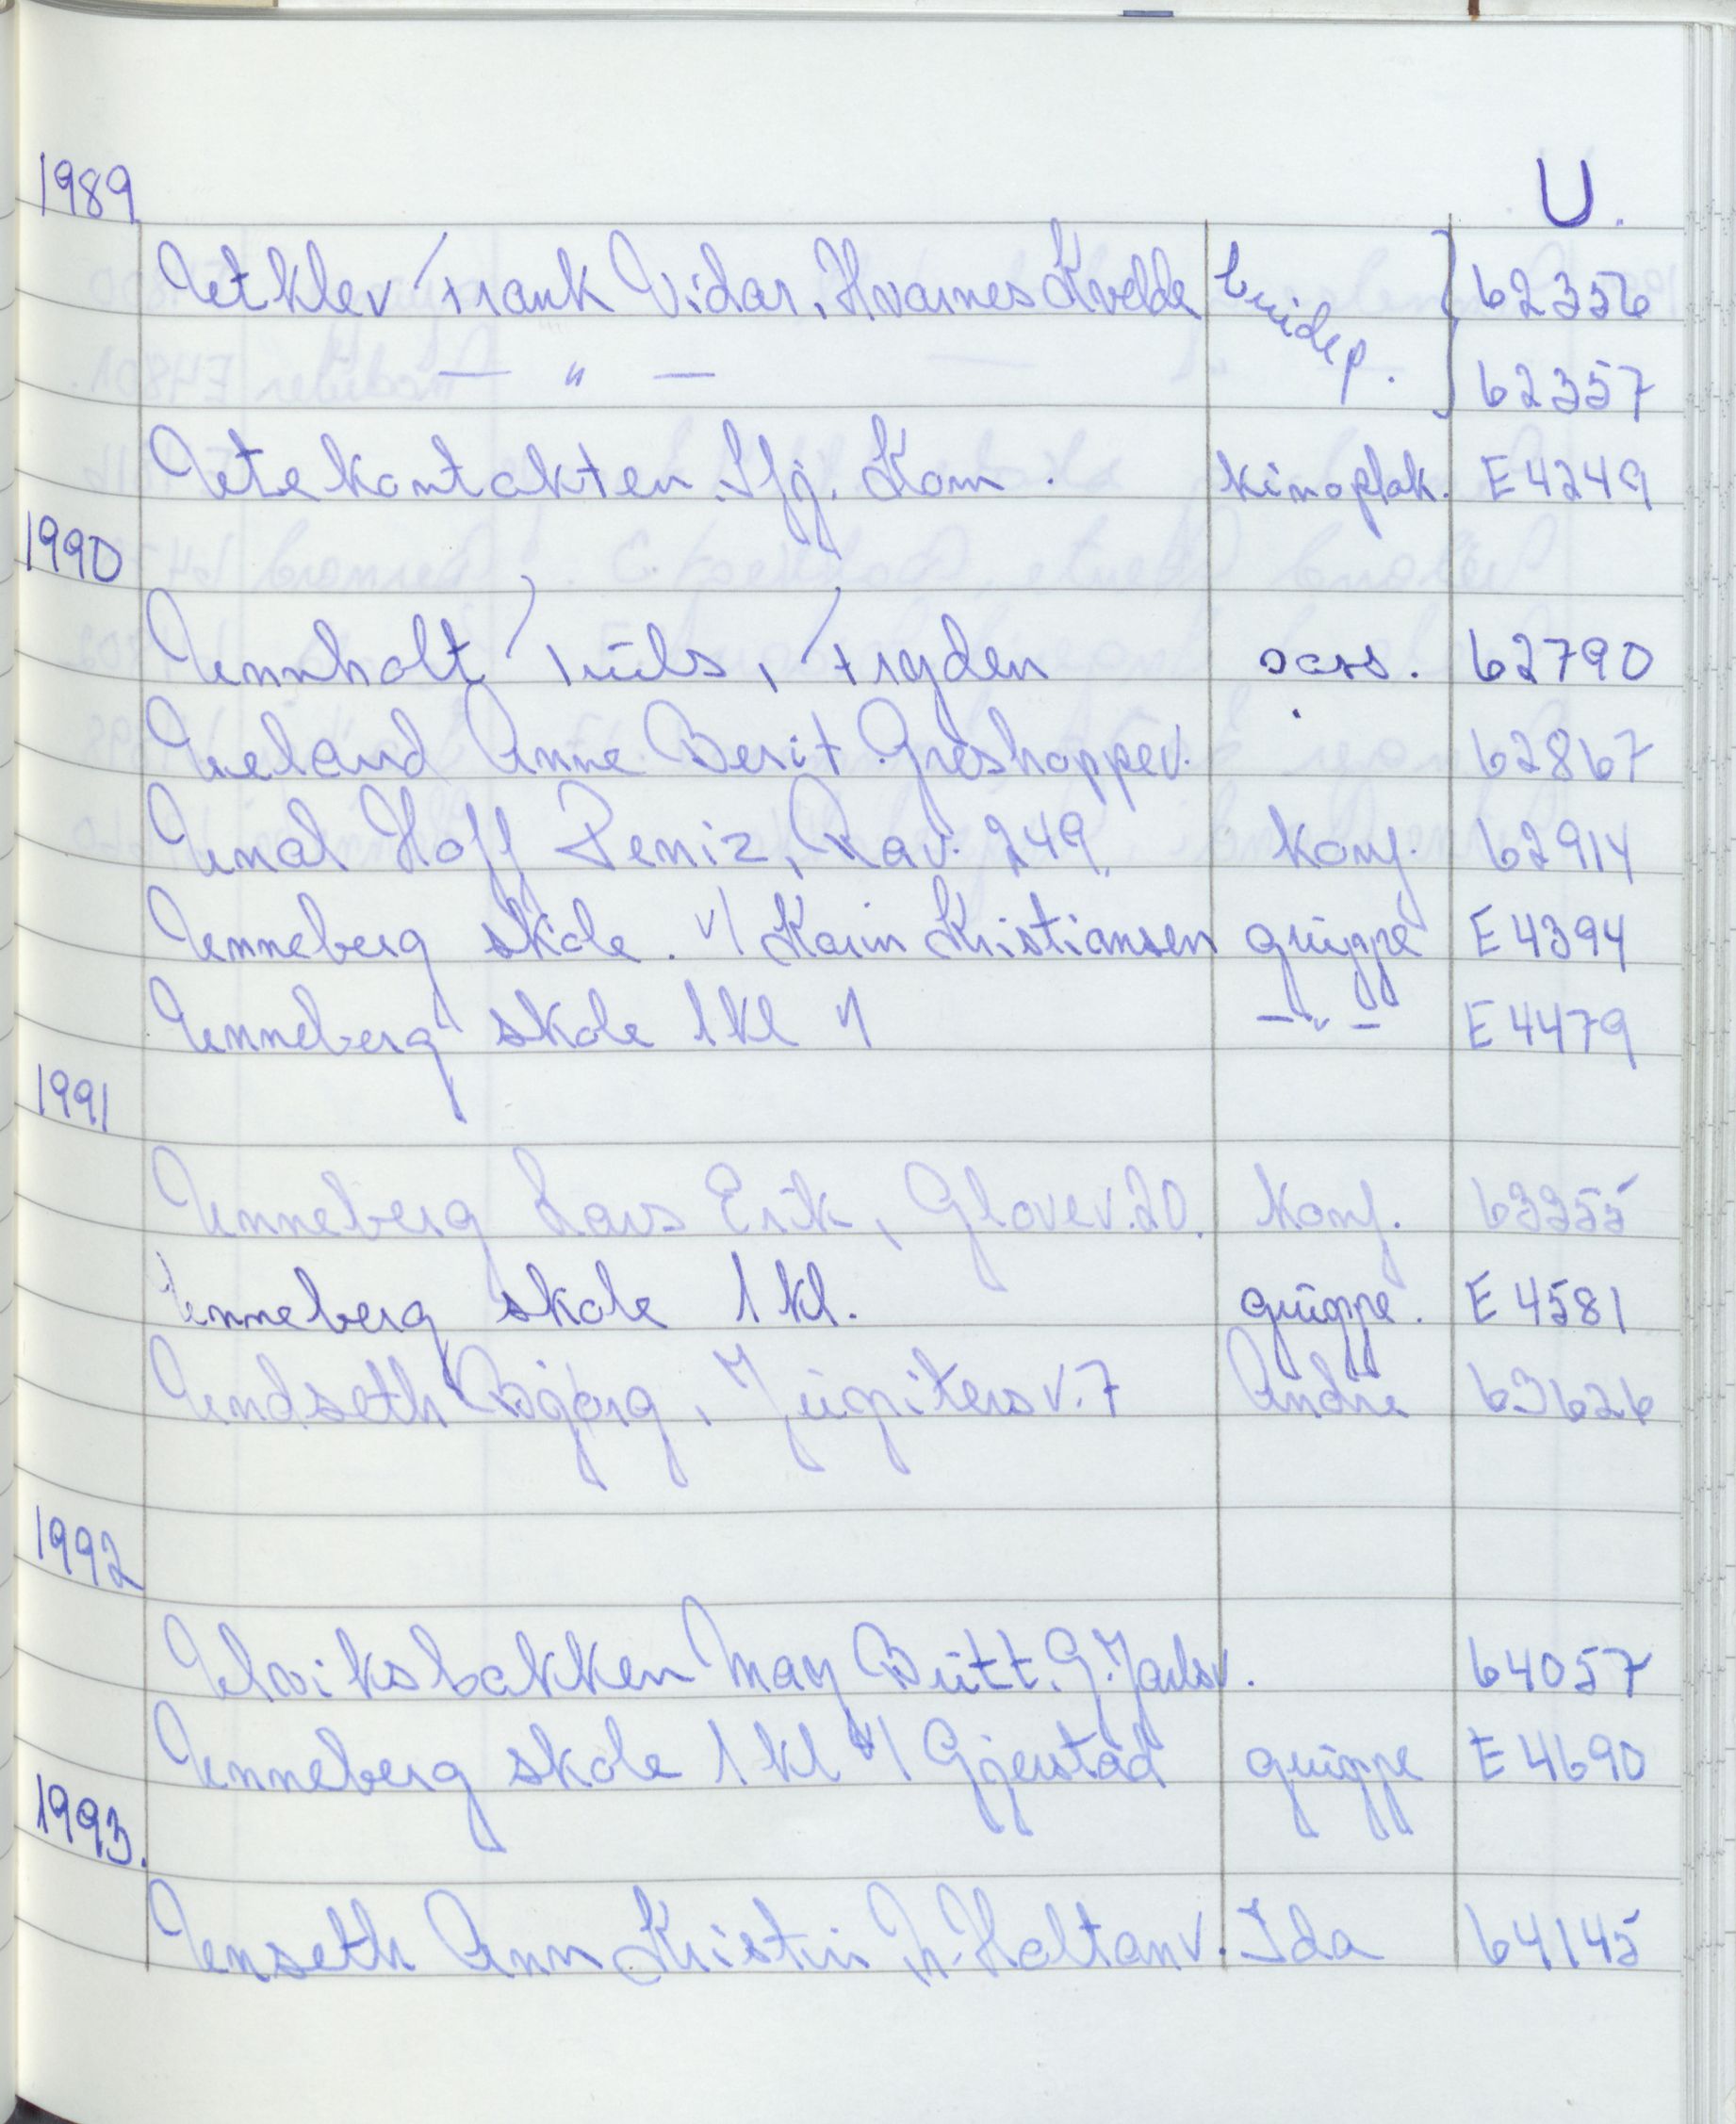 1989 U.
Utklev Frank Vidar, Hvarnes Kvelde brudep. 62356
— " — 62357
Utekontakten Sfj. Kom. kinoplak. E4249
1990
Unnholt Truls, Fryden pass. 62790
Ueland Anne Berit Greshoppev. 62867
Unal Hoff Deniz, Rav. 249. Konf. 62914
Unneberg skole. v/ Karin Kristiansen gruppe E4394
Unneberg skole 1 kl v/ — " — E4479
1991
Unneberg Lars Erik, Glovev. 20. Konf. 63355
Unneberg skole 1 kl. gruppe. E4581
Undseth Bjørg, Jupitersv. 7 Andre 63626
1992
Ulviksbakken May Britt. G. Jarlsv. 64057
Unneberg skole 1 kl v/ Gjerstad gruppe E4690
1993.
Unseth Ann Kristin N. Holtanv. Ida 64145